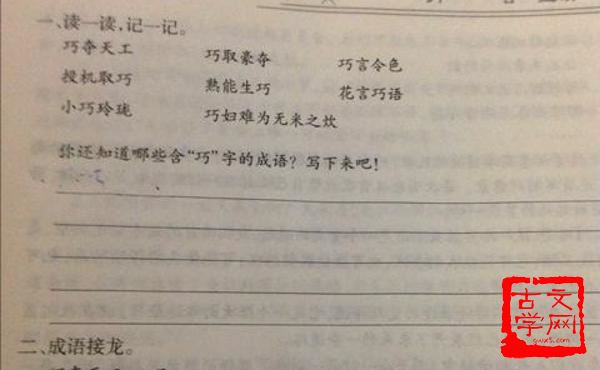 一、读一读,记一记。
巧夺天工 巧取豪夺 巧言令色
投机取巧 熟能生巧 花言巧语
小巧玲珑 巧妇难为无米之炊
你还知道哪些含“巧”字的成语?写下来吧!
二、成语接龙。
古文
学网
gwx5.com